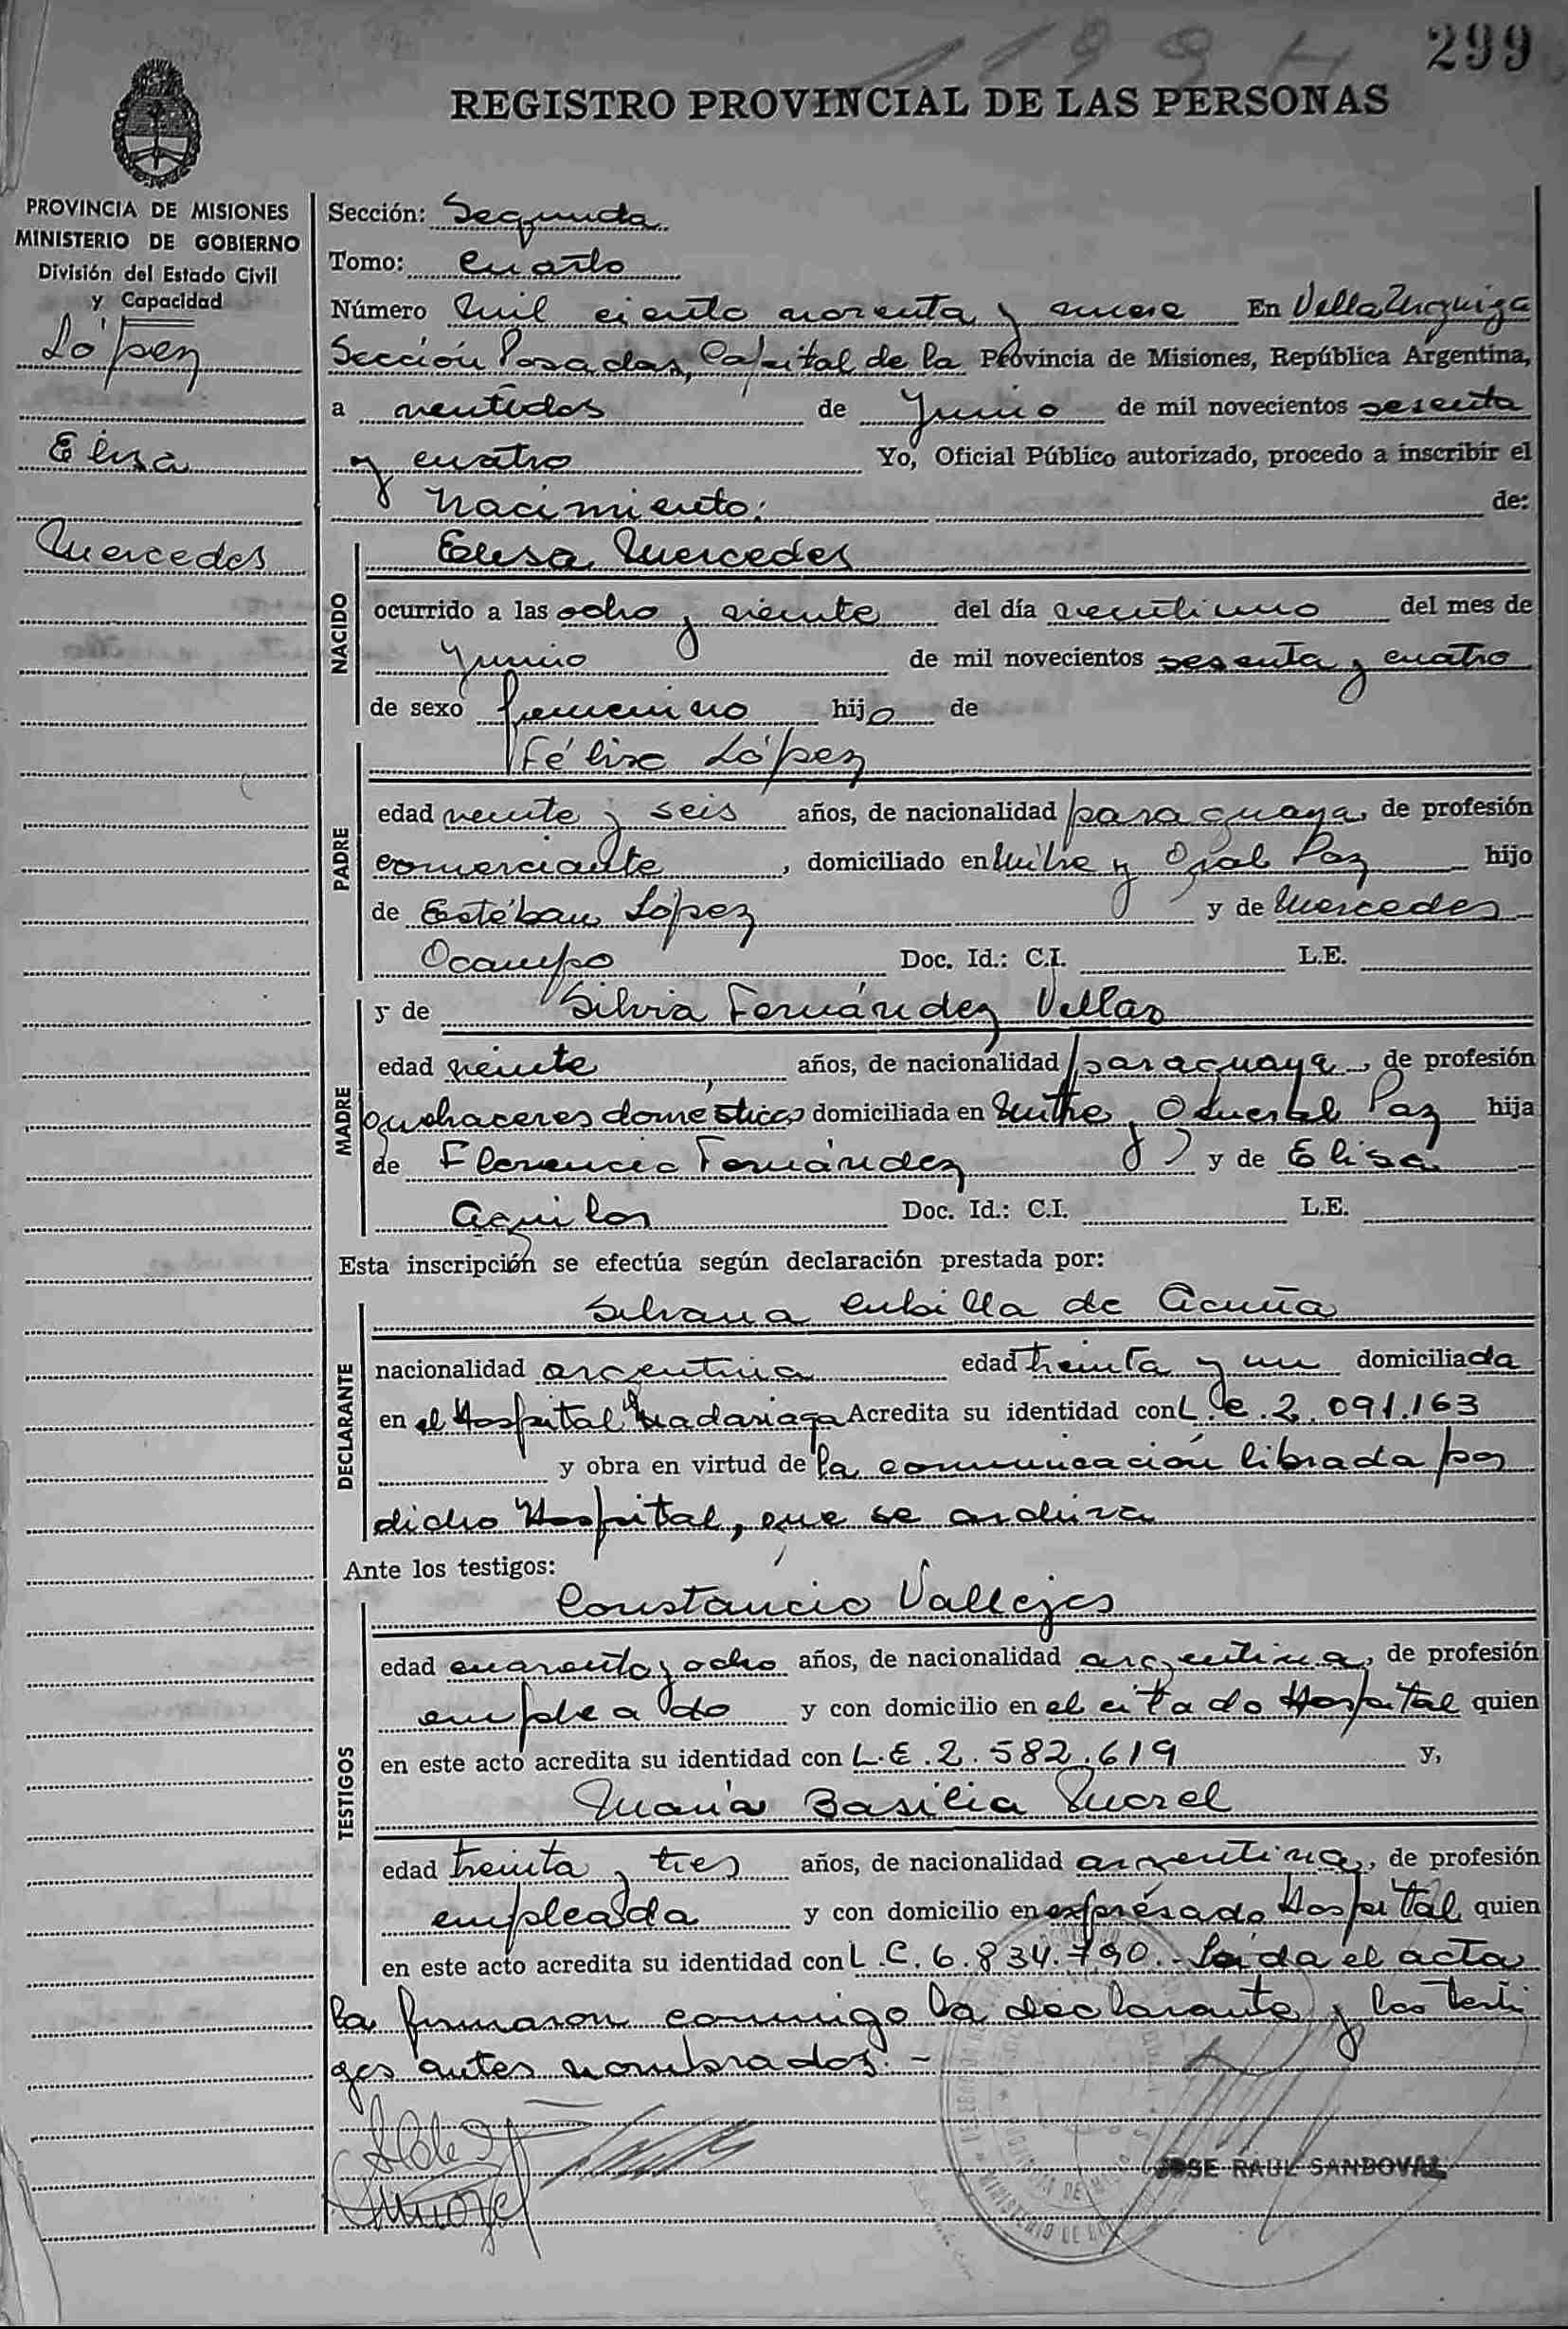 299
REGISTRO PROVINCIAL DE LAS PERSONAS
PROVINCIA DE MISIONES
MINISTERIO DE GOBIERNO
División del Estado Civil
y Capacidad
López
Elisa
Mercedes
Sección: Segunda
Tomo: Cuarto
Número Mil ciento noventa y nueve En Villa Urquiza
Sección Posadas, Capital de la Provincia de Misiones, República Argentina,
a ventidos de Junio de mil novecientos sesenta
y cuatro Yo, Oficial Público autorizado, procedo a inscribir el
Nacimiento: de:
NACIDO
Elisa Mercedes
ocurrido a las ocho y veinte del día ventiuno del mes de
Junio de mil novecientos sesenta y cuatro
de sexo femenino hijo de
PADRE
Félix López
edad veinte y seis años, de nacionalidad paraguaya, de profesión
comerciante, domiciliado en Mitre y Gral Paz hijo
de Estéban López y de Mercedes
Ocampo Doc. Id.: C.I. L.E.
MADRE
y de Silvia Fernández Villar
edad veinte años, de nacionalidad paraguaya, de profesión
quehaceres domésticos domiciliada en Mitre y General Paz hija
de Florencio Fernández y de Elisa
Aguilar Doc. Id.: C.I. L.E.
Esta inscripción se efectúa según declaración prestada por:
DECLARANTE
Silvana Cubilla de Acuña
nacionalidad argentina edad treinta y un domiciliada
en el Hospital Madariaga Acredita su identidad con L.C. 2.091.163
y obra en virtud de la comunicación librada por
dicho Hospital, que se archiva
Ante los testigos:
TESTIGOS
Constancio Vallejos
edad cuarenta y ocho años, de nacionalidad argentina, de profesión
empleado y con domicilio en el citado Hospital quien
en este acto acredita su identidad con L.E. 2.582.619 y,
María Basilia Morel
edad treinta y tres años, de nacionalidad argentina, de profesión
empleada y con domicilio en expresado Hospital quien
en este acto acredita su identidad con L.C. 6.834.790.- Leida el acta
la firmaron conmigo la declarante y los testi
gos antes nombrados.-
JOSE RAUL SANDOVAL